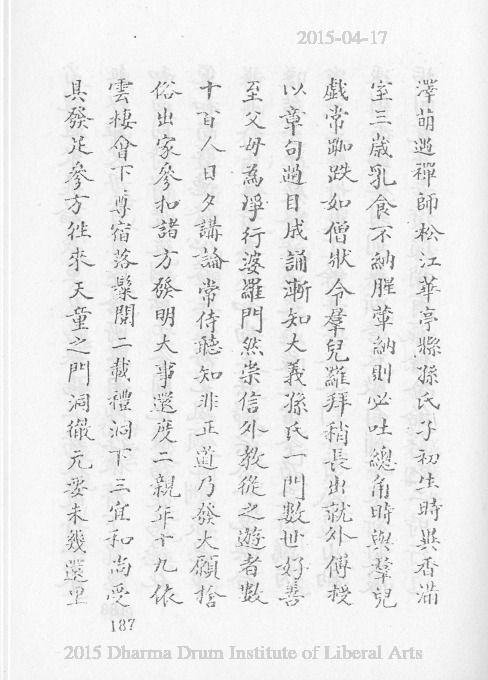 2015-04-17
澤萌遇禪師松江華亭縣孫氏子初生時異香滿
室三歲乳食不納腥葷納則必吐總角時與羣兒
戲常跏趺如僧狀令羣兒羅拜稍長出就外傅授
以章句過目成誦漸知大義孫氏一門數世好善
至父母為淨行婆羅門然崇信外教從之遊者數
十百人日夕講論常侍聽知非正道乃發大願捨
俗出家參扣諸方發明大事還度二親年十九依
雲棲會下尊宿落髮閱二載禮洞下三宜和尚受
具發足參方徃來天童之門洞徹元要未幾還里
187
2015 Dharma Drum Institute of Liberal Arts